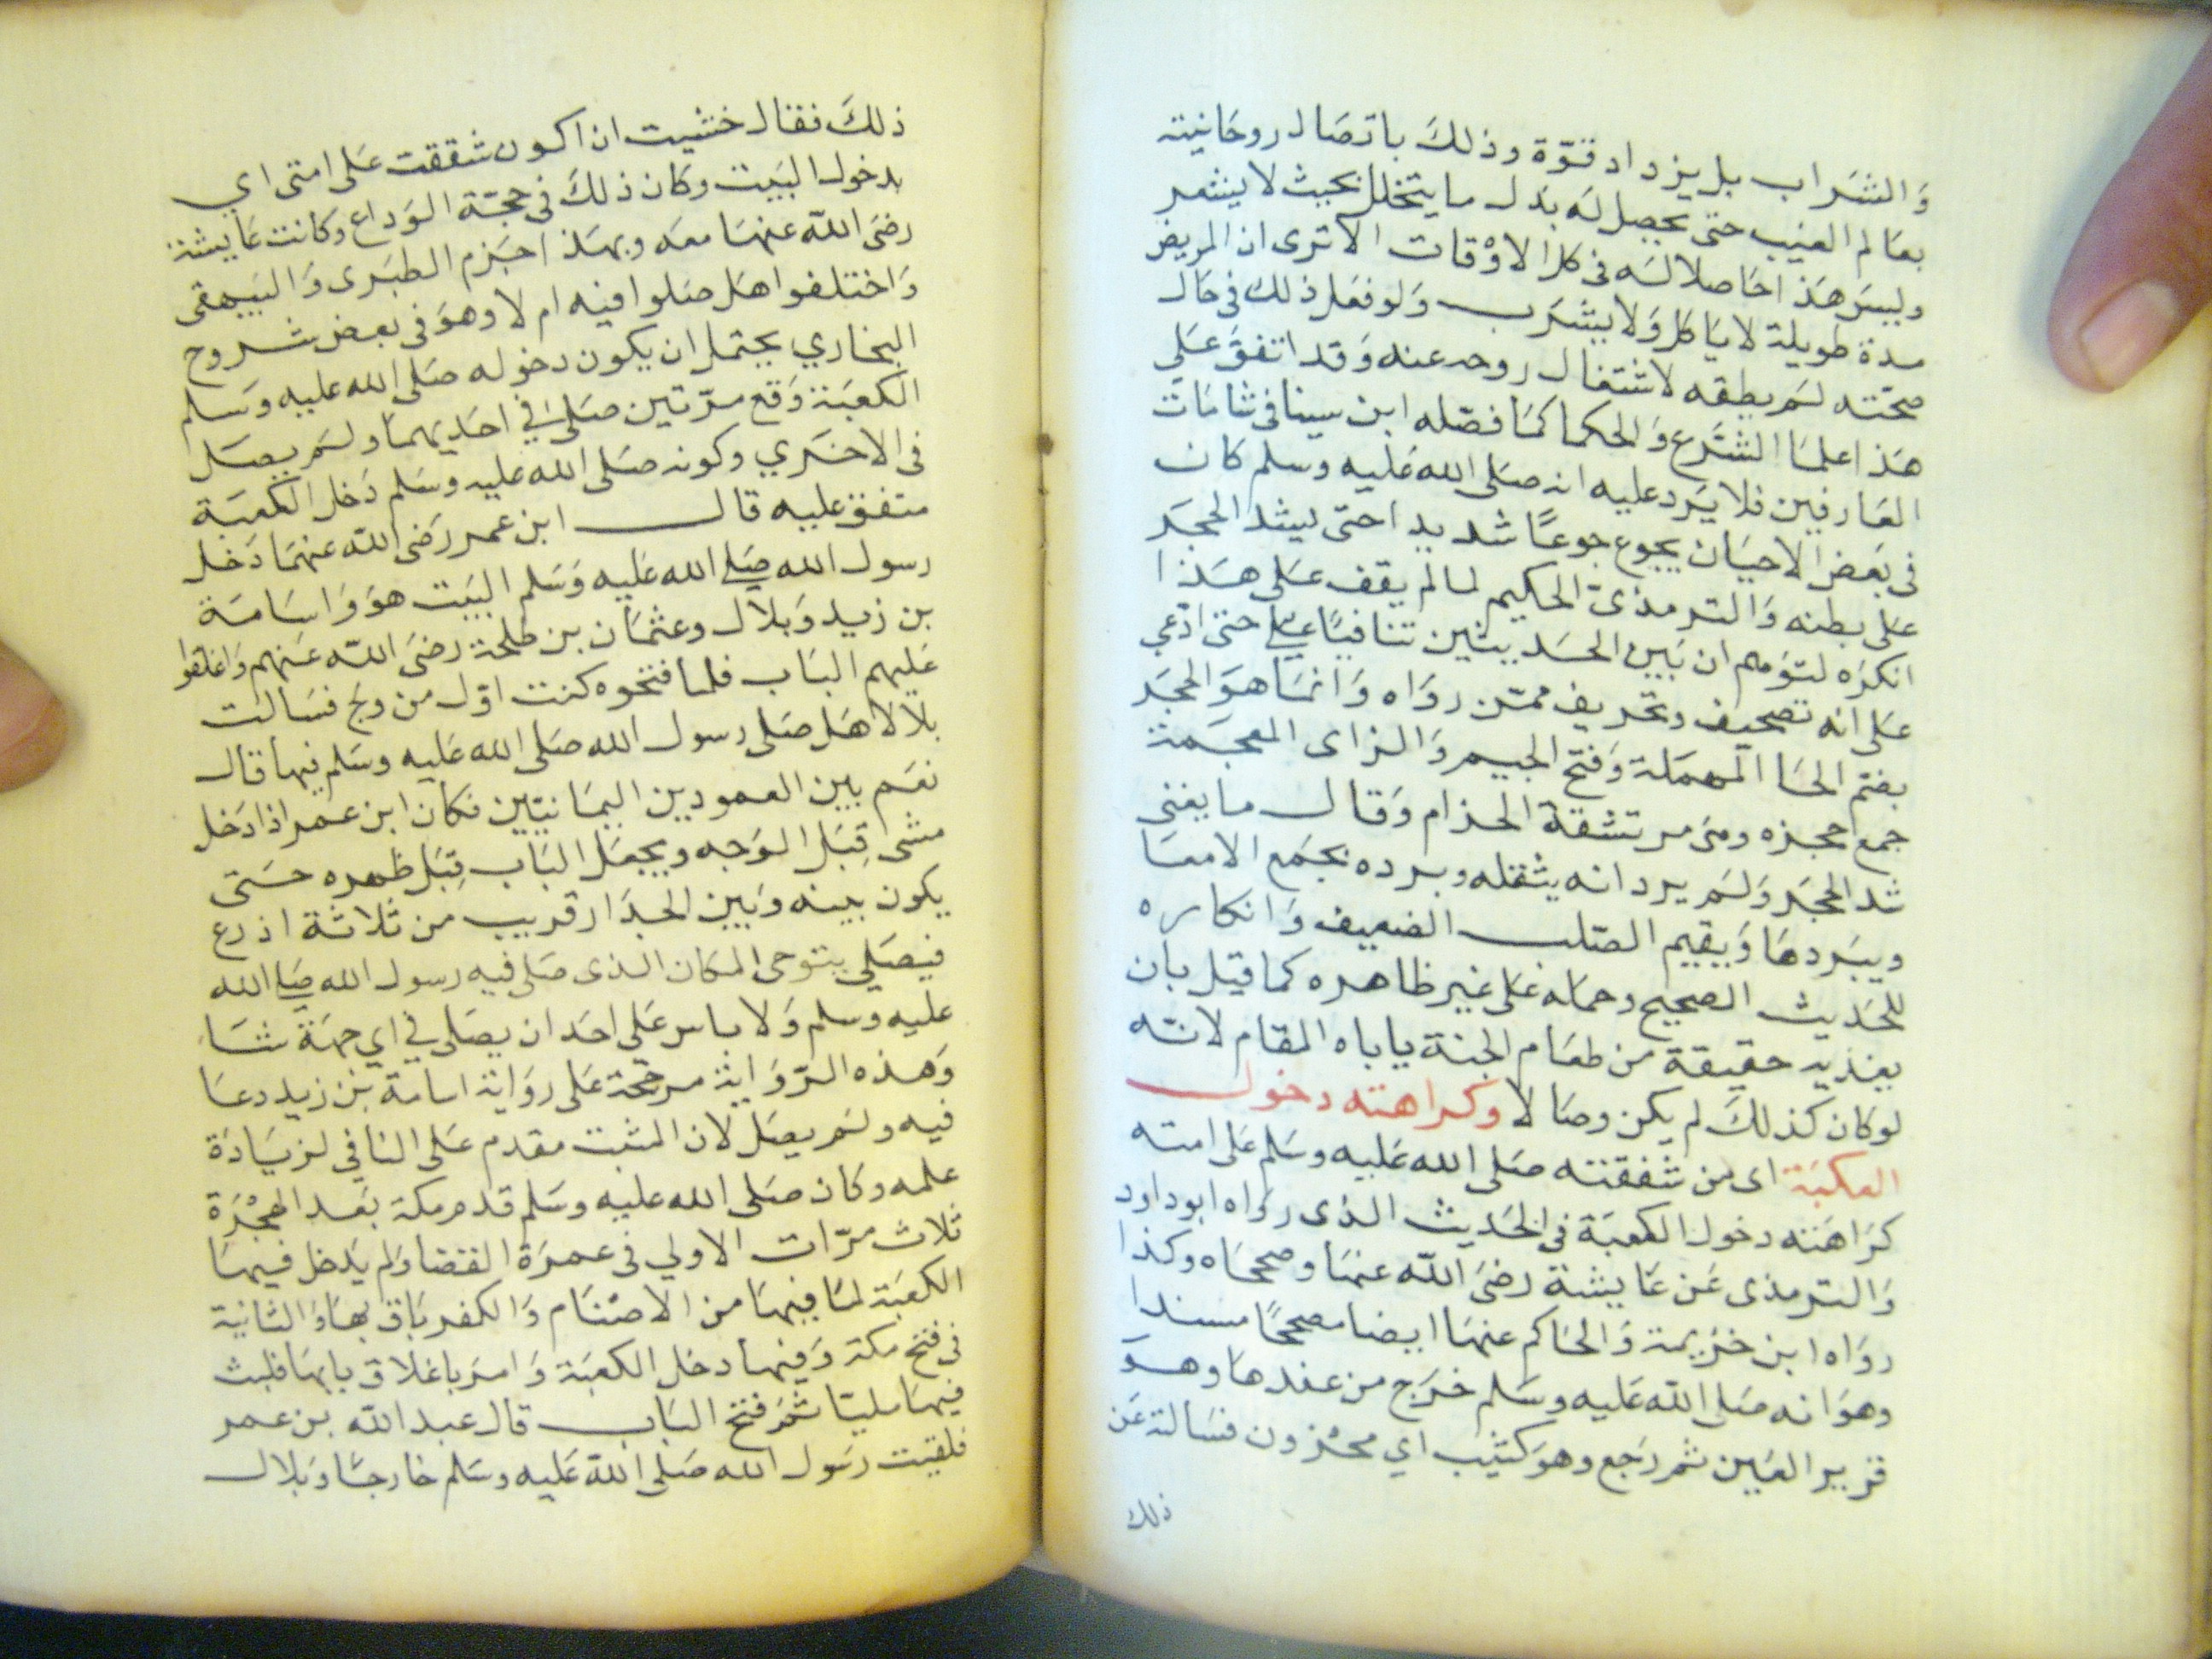 والشراب بل يزداد قوة وذلك باتصال روحانيته
بعالم الغيب حتى يحصل له بدل ما يتخلل بحيث لا ينثمر
وليس هذا حاصلا له في كل الاوقات الا ترى ان المريض
مدة طويلة لا ياكل ولا يشرب ولو فعل ذلك في حال
صحته لم يطقه لاشتغال روحه عنه وقد اتفق على
هذا علما الشرع والحكما كما فصله ابن سينا في مقامات
العارفين فلا يرد عليه انه صلى الله عليه وسلم كان
في بعض الاحيان يجوع جوعًا شديدا حتى ليشد الحجر
على بطنه والترمذي الحكيم لما لم يقف على هذا
انكره لتوهم ان بين الحديثين تنافيًا حتى ادعى
على انه تصحيف وتحريف ممن رواه وانما هو الحجز
بضم الحا المهملة وفتح الجيم والزاى المعجمة
جمع حجزه وهى مر تشقة الحزام وقال ما يغنى
شد الحجر ولم يرد انه يثقله وبرده يجمع الامعا
ويبردها ويقيم الصلب الضعيف وانكاره
للحديث الصحيح وحمله على غير ظاهره كما قيل بان
يغذيه حقيقة من طعام الجنة ياباه المقام لانه
لو كان كذلك لم يكن وصالا وكراهته دخول
العكبة اى من شفقته صلى الله عليه وسلم على امته
كراهته دخول الكعبة في الحديث الذى رواه ابو داود
والترمذى عن عايشة رضى الله عنها وصححاه وكذا
رواه ابن خزيمة والحاكم عنها ايضا مصححًا مسندا
وهو انه صلى الله عليه وسلم خرج من عندها وهو
قرير العين ثم رجع وهو كئيب اي محزون فسالته عن
ذلك
ذلك فقال خشيت ان اكون شققت على امتى اي
بدخول البيت وكان ذلك في حجة الوداع وكانت عايشة
رضى الله عنها معه وبهذا جزم الطبرى والبيهقى
واختلفوا هل صلوا فيه ام لا وهو فى بعض شروح
البخاري يحتمل ان يكون دخوله صلى الله عليه وسلم
الكعبة وقع مرتين صلى في احديهما ولم يصل
في الاخري وكونه صلى الله عليه وسلم دخل الكعبة
متفق عليه قال ابن عمر رضى الله عنهما دخل
رسول الله صلى الله عليه وسلم البيت هو واسامة
بن زيد وبلال وعثمان بن طلحة رضى الله عنهم واغلقوا
عليهم الباب فلما فتحوه كنت اول من ولج فسالت
بلالا هل صلى رسول الله صلى الله عليه وسلم فيها قال
نعم بين العمودين اليمانيين فكان ابن عمر اذا دخل
مشى قِبَل الوجه ويجعل الباب قِبَل ظهره حتى
يكون بينه وبين الجدار قريب من ثلاثة اذرع
فيصلي يتوخى المكان الذى صلى فيه رسول الله صلى الله
عليه وسلم ولا باس على احد ان يصلى في اي جهة شا
وهذه الرواية مرجحة على رواية اسامة بن زيد دعا
فيه ولم يصل لان المثبت مقدم على النافي لزيادة
علمه وكان صلى الله عليه وسلم قدم مكة بعد الهجْرة
ثلاث مرات الاولي في عمرة القضا ولم يدخل فيها
الكعبة لما فيها من الاصنام والكفر باق بها والثانية
في فتح مكة وفيها دخل الكعبة وامر باغلاق بابها فلبث
فيها مليا ثم فتح الباب قال عبد الله بن عمر
فلقيت رسول الله صلى الله عليه وسلم خارجًا وبلال